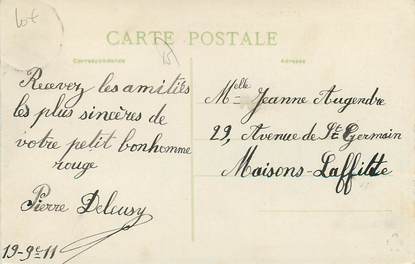 lot
CARTE POSTALE
Correspondance
Adresse
15
Recevez les amitiés
les plus sincères de
votre petit bonhomme
rouge
Pierre
19-9e-11
Melle Jeanne Augendre
29, Avenue de St Germain
Maisons-Laffitte